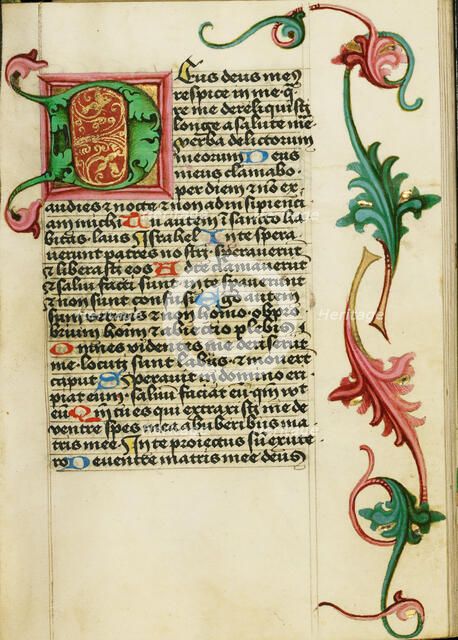 Deus deus me9
respice in me · q̄
re me dereliquisti
longe a salute me
verba delictorum
meorum Deus
meus clamabo
per diem ⁊ nō ex
audies ⁊ nocte ⁊ non ad īsipienci
am michi Tu autem ī sancto ha
bitas laus Israhel In te spera
uerunt patres nostri sperauerūt
⁊ liberasti eos Ad te clamauerūt
⁊ salui facti sunt in te sperauerūt
⁊ non sunt confusi Ego autem
sum vermis ⁊ non homo · obpro
brium hoīm ⁊ abiectio plebis
Omnes videntes me deriserūt
me · locuti sunt labiis · ⁊ mouerūt
caput Sperauit in domino eri
piat eum · saluū faciat eū · qm̄ vult
eū Qm̄ tu es qui extraxisti me de
ventre spes mea ab uberibus ma
tris mee In te proiectus sū ex ute
ro De uentre matris mee deus
Heritage
Heritage